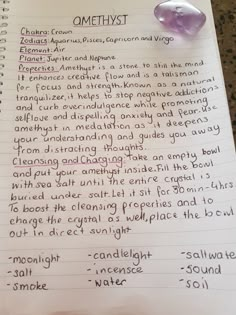 AMETHYST
Chakra: Crown
Zodiacs: Aquarius, Pisces, Capricorn and Virgo
Element: Air
Planet: Jupiter and Neptune
Properties: Amethyst is a stone to still the mind
It enhances creative flow and is a talisman
for focus and strength. Known as a natural
tranquilizer, it helps to stop negative addictions
and curb overindulgence while promoting
selflove and dispelling anxiety and fear. Use
amethyst in medatation as it deepens
your understanding and guides you away
from distracting thoughts.
Cleansing and Charging: Take an empty bowl
and put your amethyst inside. Fill the bowl
with sea salt until the entire crystal is
buried under salt. Let it sit for 30 min-4hrs
To boost the cleansing properties and to
charge the crystal as well, place the bowl
out in direct sunlight
-moonlight -candlelight -saltwate
-salt -incensce -sound
-smoke -water -soil